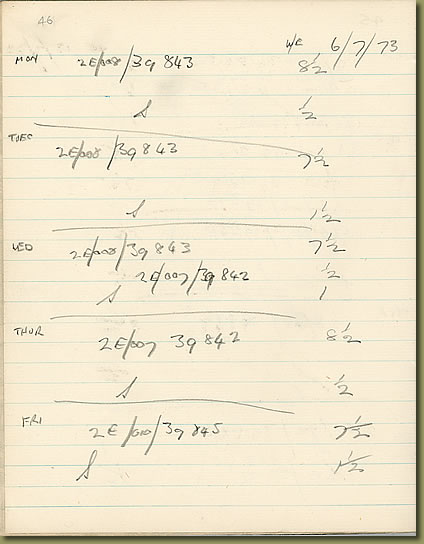 46
W/C 6/7/73
MON 2E/008/39 843 8½
S ½
TUES 2E/008/39 843 7½
S 1½
WED 2E/008/39 843 7½
2E/007/39 842 ½
S 1
THUR 2E/007 39 842 8½
S ½
FRI 2E/010/39 845 7½
S 1½